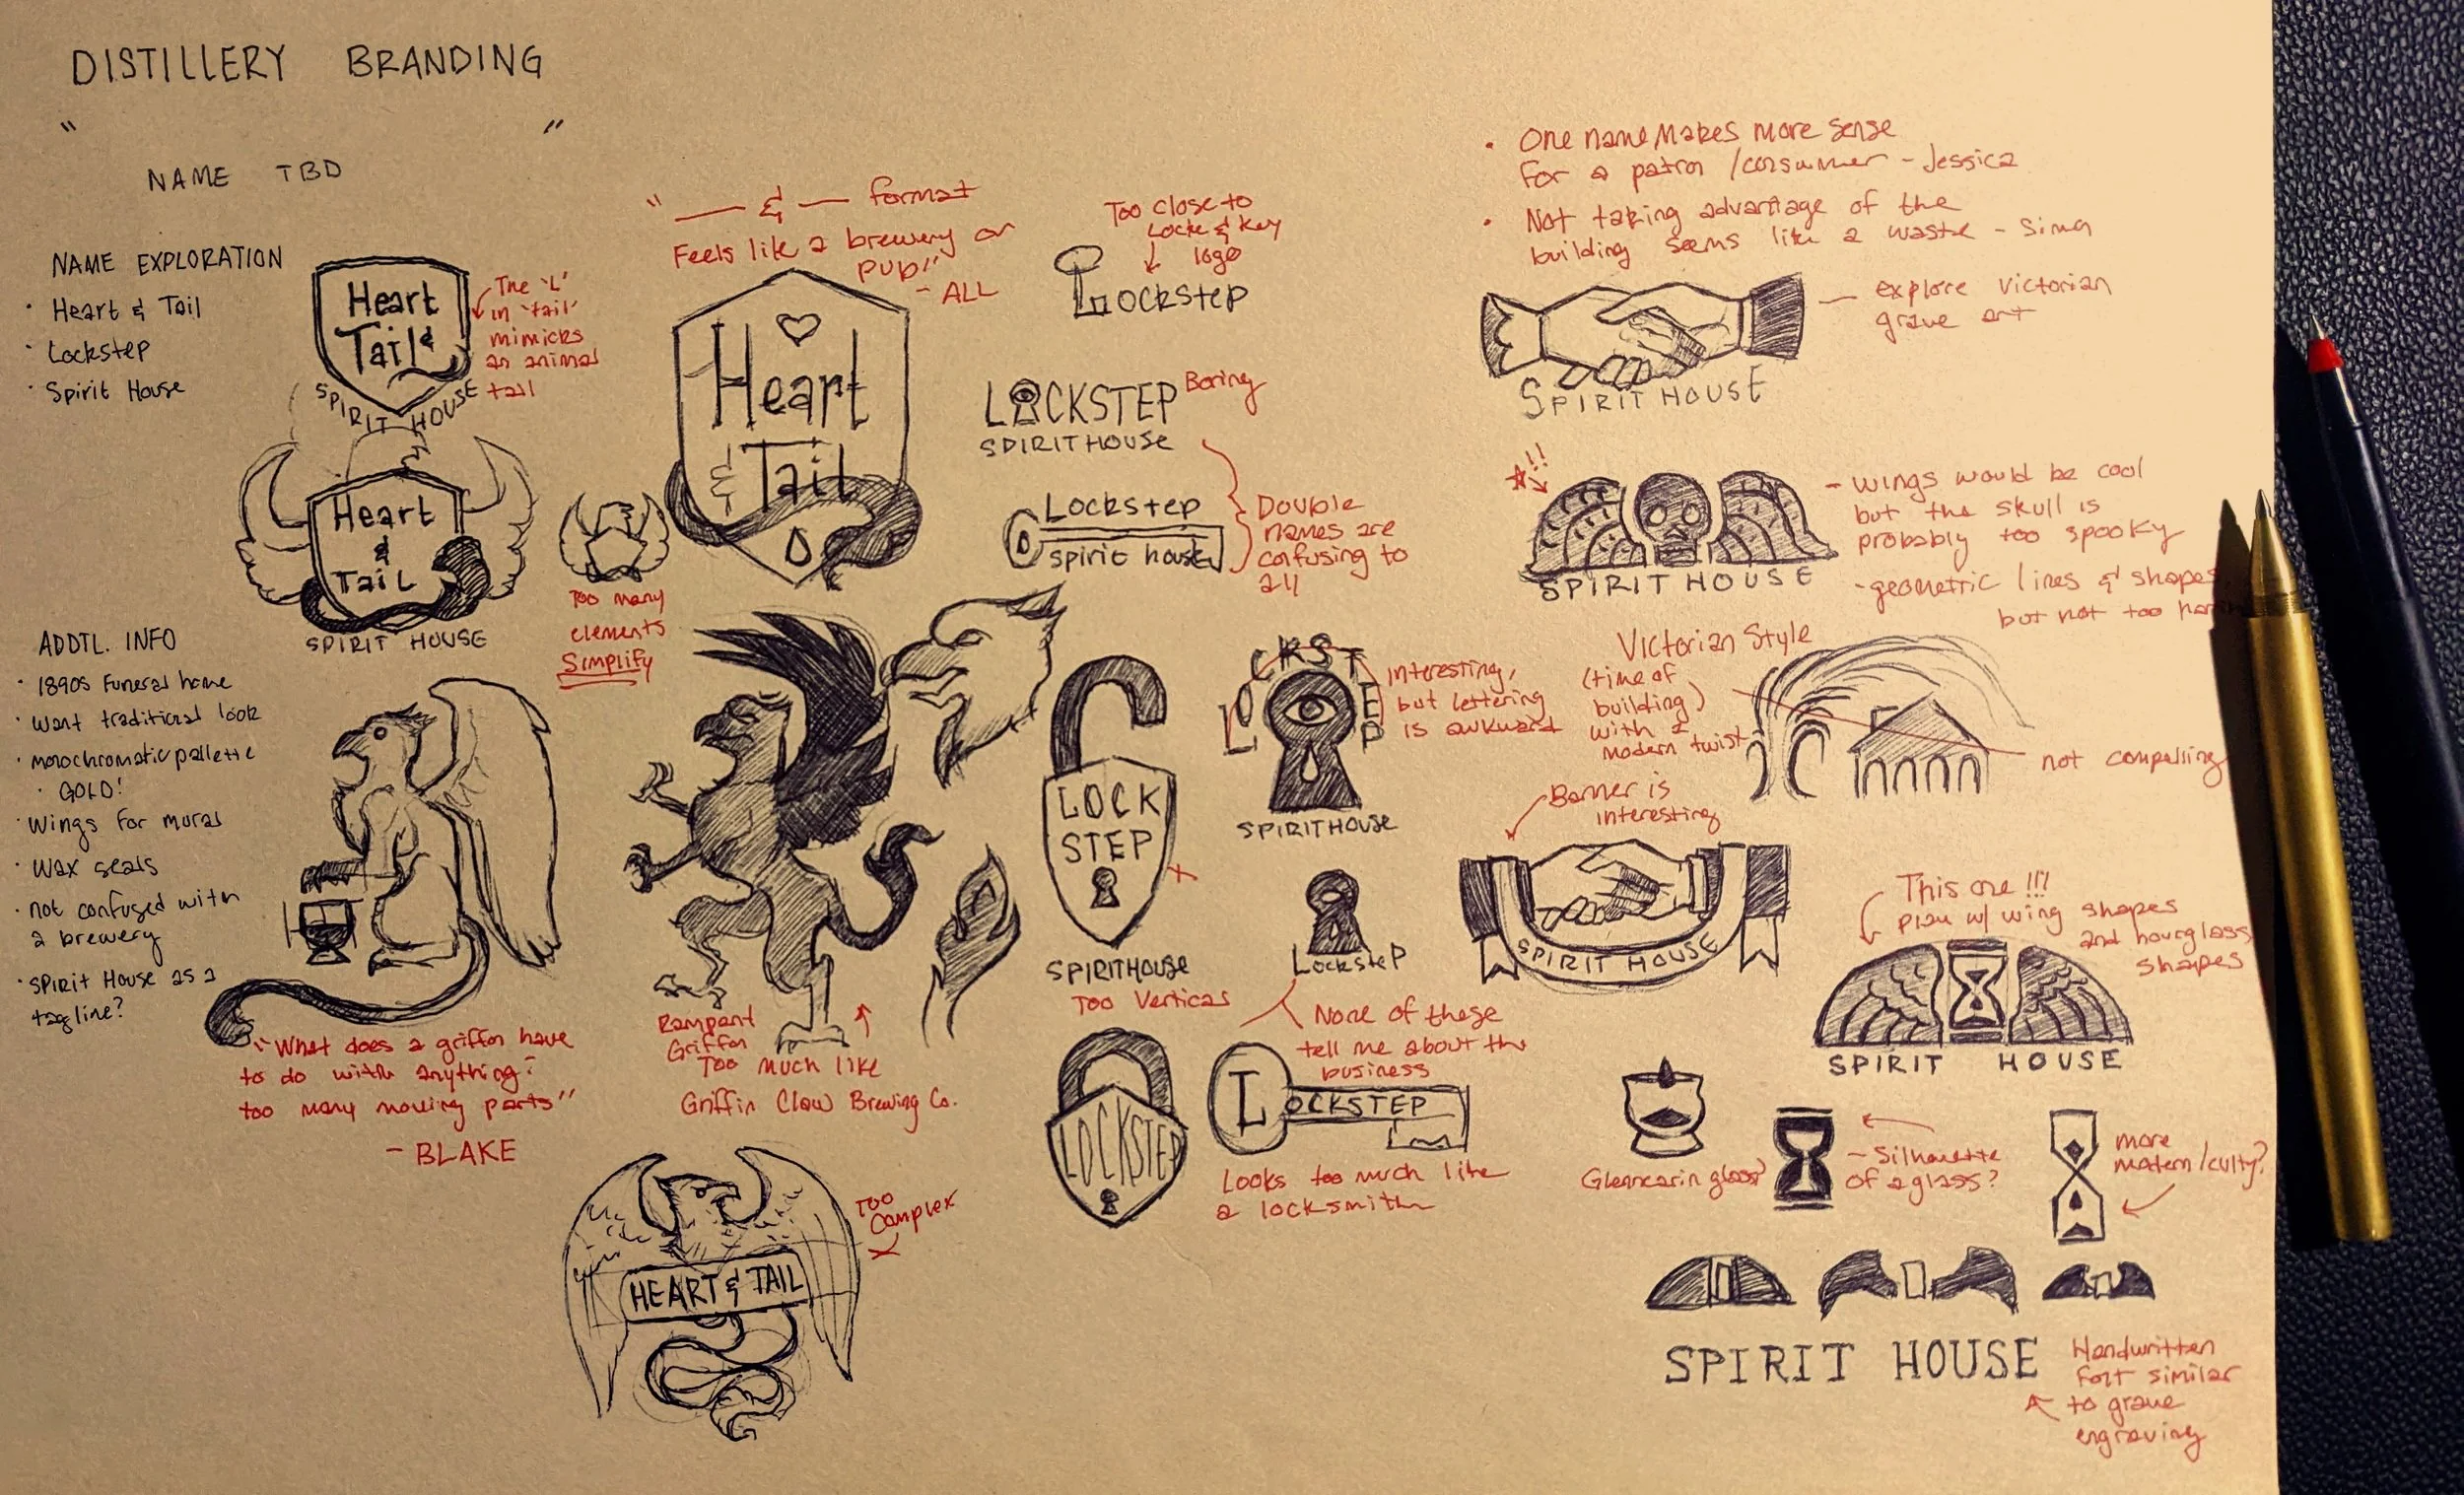 DISTILLERY BRANDING
" "
NAME TBD
NAME EXPLORATION
· Heart & Tail
· Lockstep
· Spirit House
ADDTL. INFO
· 1890s Funeral home
· want traditional look
· monochromatic pallette
· GOLD!
· wings for mural
· wax seals
· not confused with
a brewery
· Spirit House as a
tagline?
Heart
Tail &
SPIRIT HOUSE
The 'L'
in 'tail'
mimicks
an animal
tail
Heart
&
Tail
SPIRIT HOUSE
Too many
elements
Simplify
"What does a griffin have
to do with anything?
too many moving parts"
- BLAKE
" — & — format
Feels like a brewery or
pub"
- ALL
Heart
& Tail
Rampant
Griffin
Too much like
Griffin Claw Brewing Co.
HEART & TAIL
Too
Complex
Too close to
Locke & Key
logo
Lockstep
LOCKSTEP
SPIRIT HOUSE
Boring
Lockstep
spirit house
Double
names are
confusing to
all
LOCK
STEP
SPIRITHOUSE
Too Vertical
LOCKSTEP
SPIRITHOUSE
Interesting,
but lettering
is awkward
Lockstep
None of these
tell me about the
business
LOCKSTEP
LOCKSTEP
Looks too much like
a locksmith
· One name makes more sense
for a patron / consumer - Jessica
· Not taking advantage of the
building seems like a waste - Sima
SPIRIT HOUSE
explore Victorian
grave art
!!
SPIRIT HOUSE
- wings would be cool
but the skull is
probably too spooky
- geometric lines & shapes
but not too
Victorian Style
(time of
building)
with a
modern twist
not compelling
Banner is
interesting
SPIRIT HOUSE
This one !!!
Play w/ wing shapes
and hourglass
shapes
SPIRIT HOUSE
Glencarin glass?
- Silhouette
of a glass?
more
modern / culty?
SPIRIT HOUSE
Handwritten
font similar
to grave
engraving